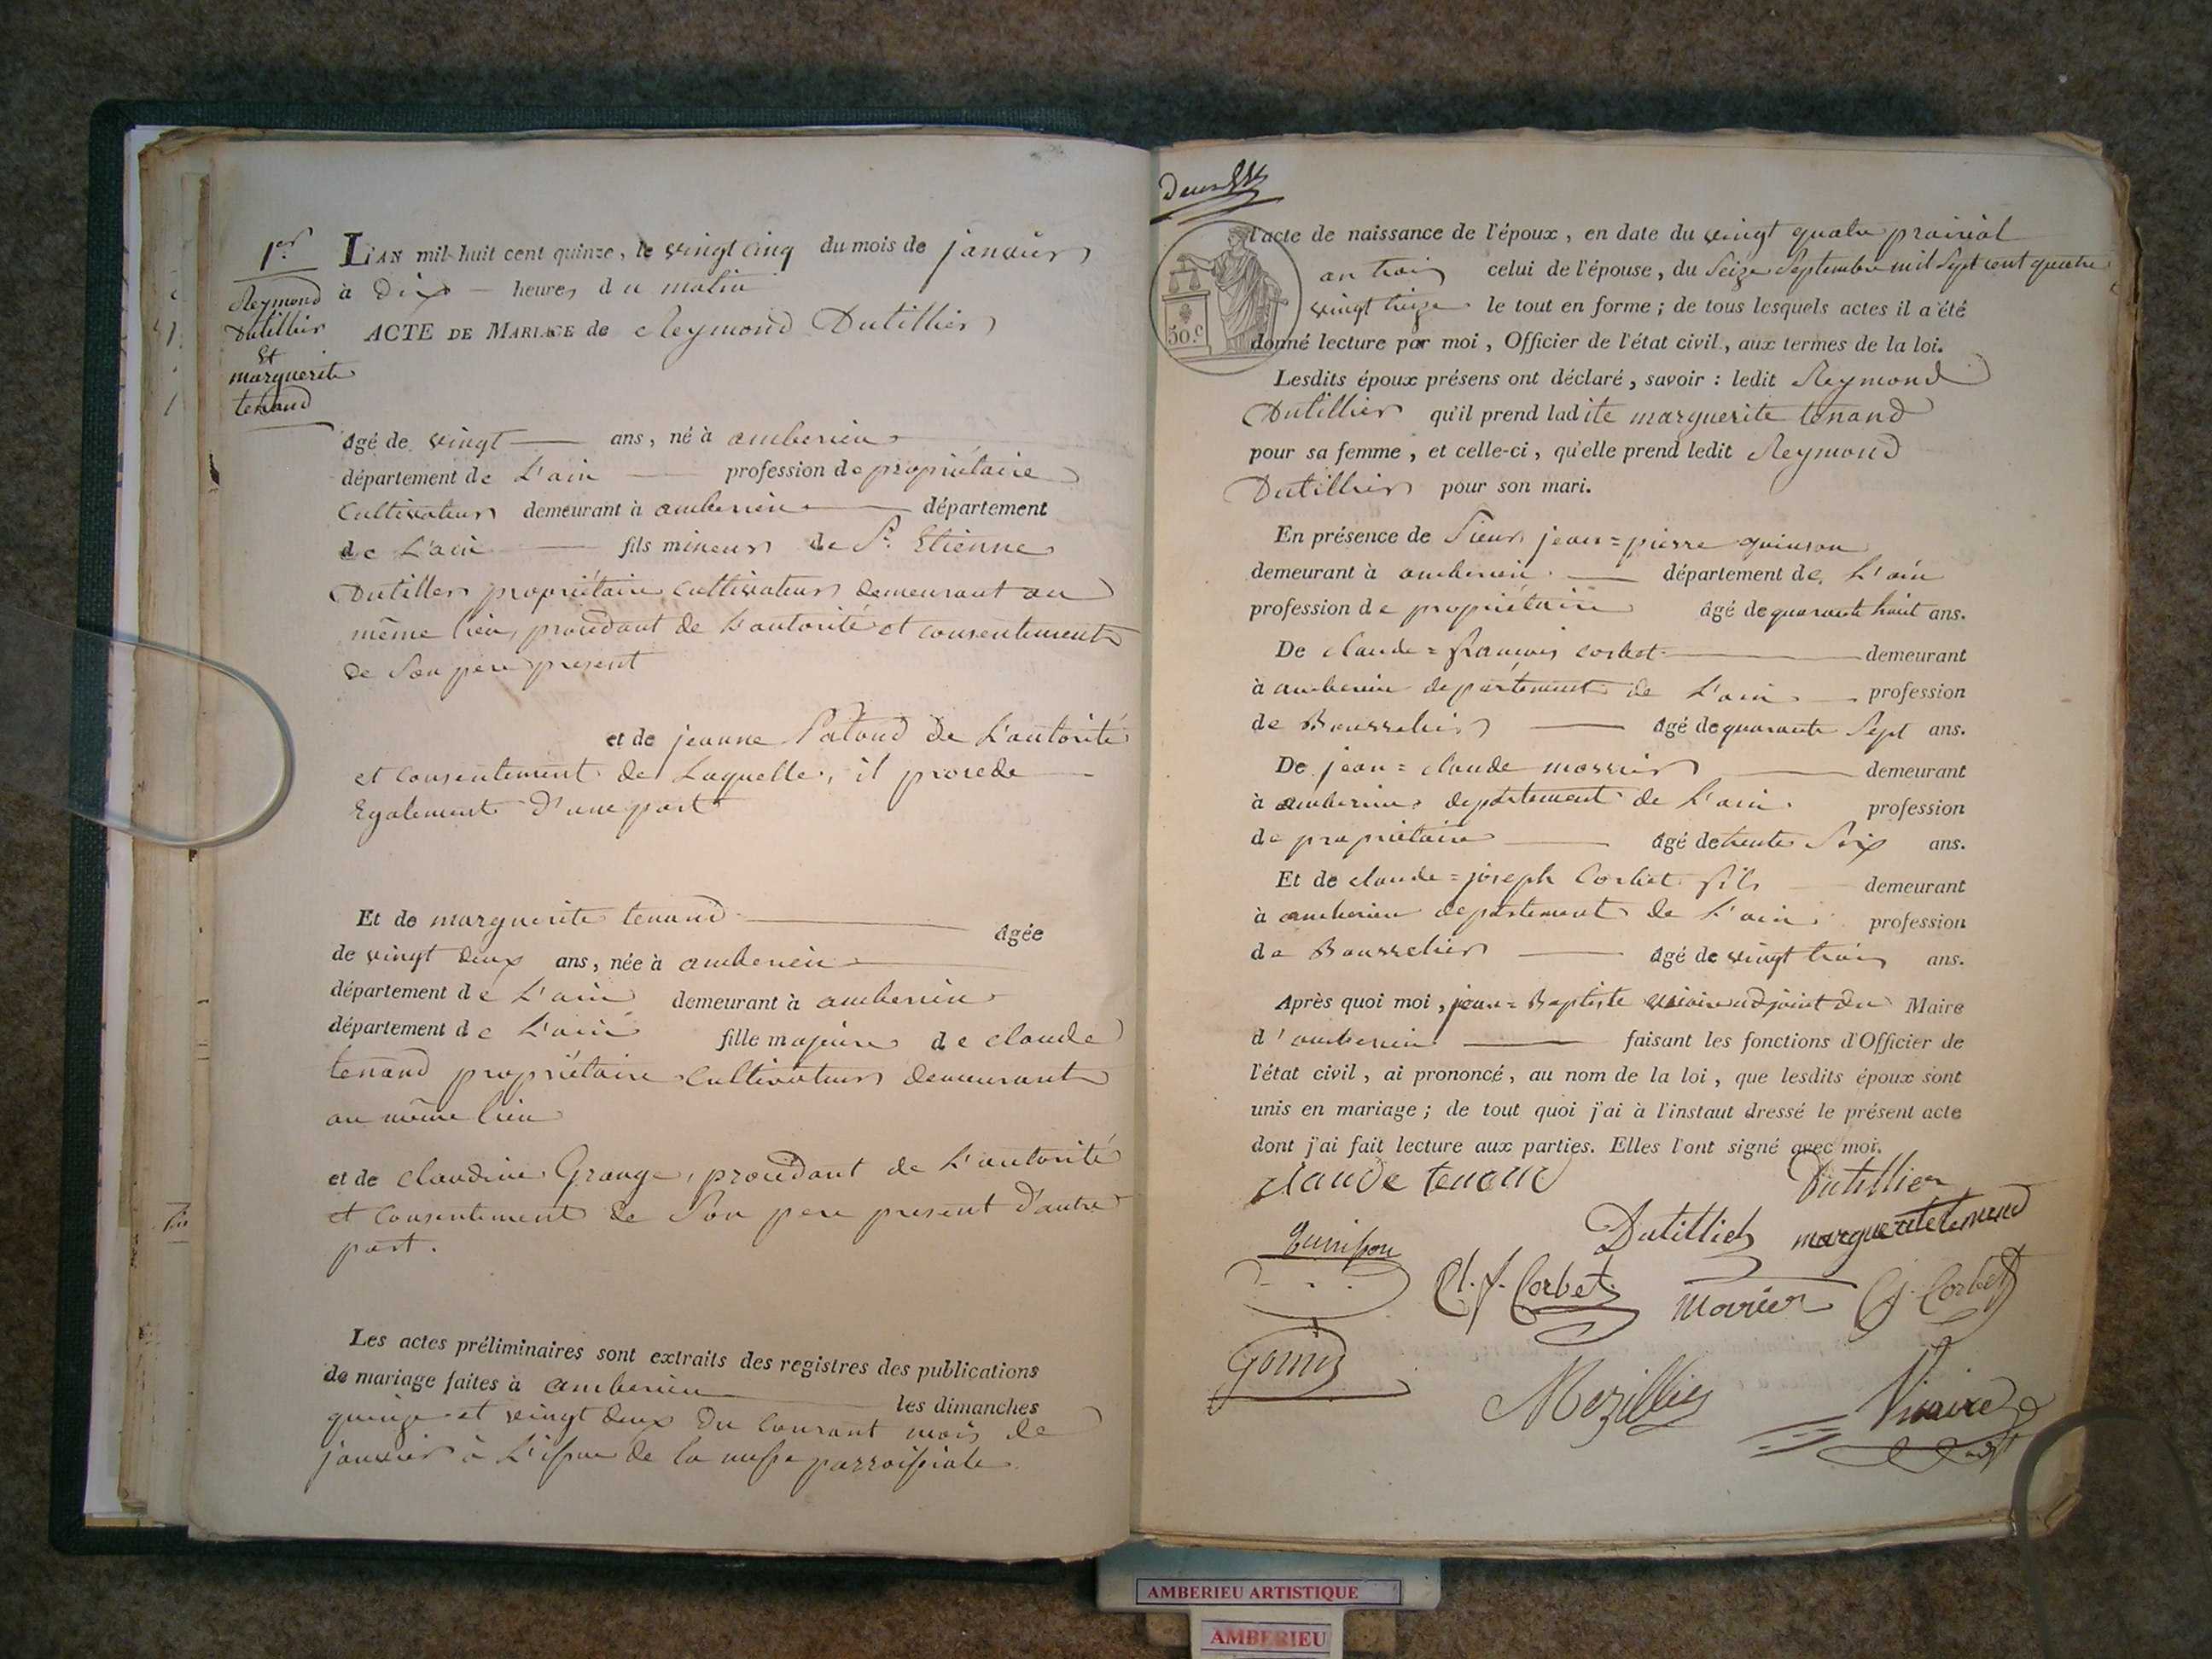 1.er
Reymond
Dutillier
Et
marguerite
tenand
L'AN mil huit cent quinze, le vingt cinq du mois de janvier
à Dix heures du matin
ACTE DE MARIAGE de Reymond Dutillier
âgé de vingt ans, né à amberieu
département de L'ain profession de propriétaire
Cultivateur demeurant à amberieu département
de L'ain fils mineur de Sr. Etienne
Dutiller propriétaire cultivateur demeurant au
même lieu, procédant de L'autorité et consentement
de Son pere present
et de jeanne Patoud de L'autorité
et consentement de Laquelle, il procede
Egalement D'une part
Et de marguerite tenand âgée
de vingt deux ans, née à amberieu
département de L'ain demeurant à amberieu
département de L'ain fille majeure de claude
tenand propriétaire Cultivateur demeurant
au même lieu
et de claudine Grange, procédant de L'autorité
et consentement de Son pere present D'autre
part.
Les actes préliminaires sont extraits des registres des publications
de mariage faites à amberieu les dimanches
quinze et vingt deux Du Courant mois de
janvier à L'issue de la messe parroissiale
50.c
l'acte de naissance de l'époux, en date du vingt quatre prairial
an trois celui de l'épouse, du Seize Septembre mil Sept cent quatre
vingt treize le tout en forme ; de tous lesquels actes il a été
donné lecture par moi, Officier de l'état civil, aux termes de la loi.
Lesdits époux présens ont déclaré, savoir : ledit Reymond
Dutillier qu'il prend ladite marguerite tenand
pour sa femme, et celle-ci, qu'elle prend ledit Reymond
Dutillier pour son mari.
En présence de Sieur jean=pierre quinson
demeurant à amberieu département de L'ain
profession de propriétaire âgé de quarante huit ans.
De claude=francois corbet demeurant
à amberieu département de L'ain profession
de Bourrelier âgé de quarante Sept ans.
De jean=claude demeurant
à amberieu département de L'ain profession
de propriétaire âgé de trente Six ans.
Et de claude=joseph Corbet fils demeurant
à amberieu département de L'ain profession
de Bourrelier âgé de vingt trois ans.
Après quoi moi, jean=Baptiste vicaire adjoint du Maire
d'amberieu faisant les fonctions d'Officier de
l'état civil, ai prononcé, au nom de la loi, que lesdits époux sont
unis en mariage ; de tout quoi j'ai à l'instaut dressé le présent acte
dont j'ai fait lecture aux parties. Elles l'ont signé avec moi.
claude tenand Dutillier
Dutillier marguerite tenand
Quinson Cl. f. Corbet Morier Cj. Corbet
Mezillies Vicaire
AMBERIEU ARTISTIQUE
AMBERIEU